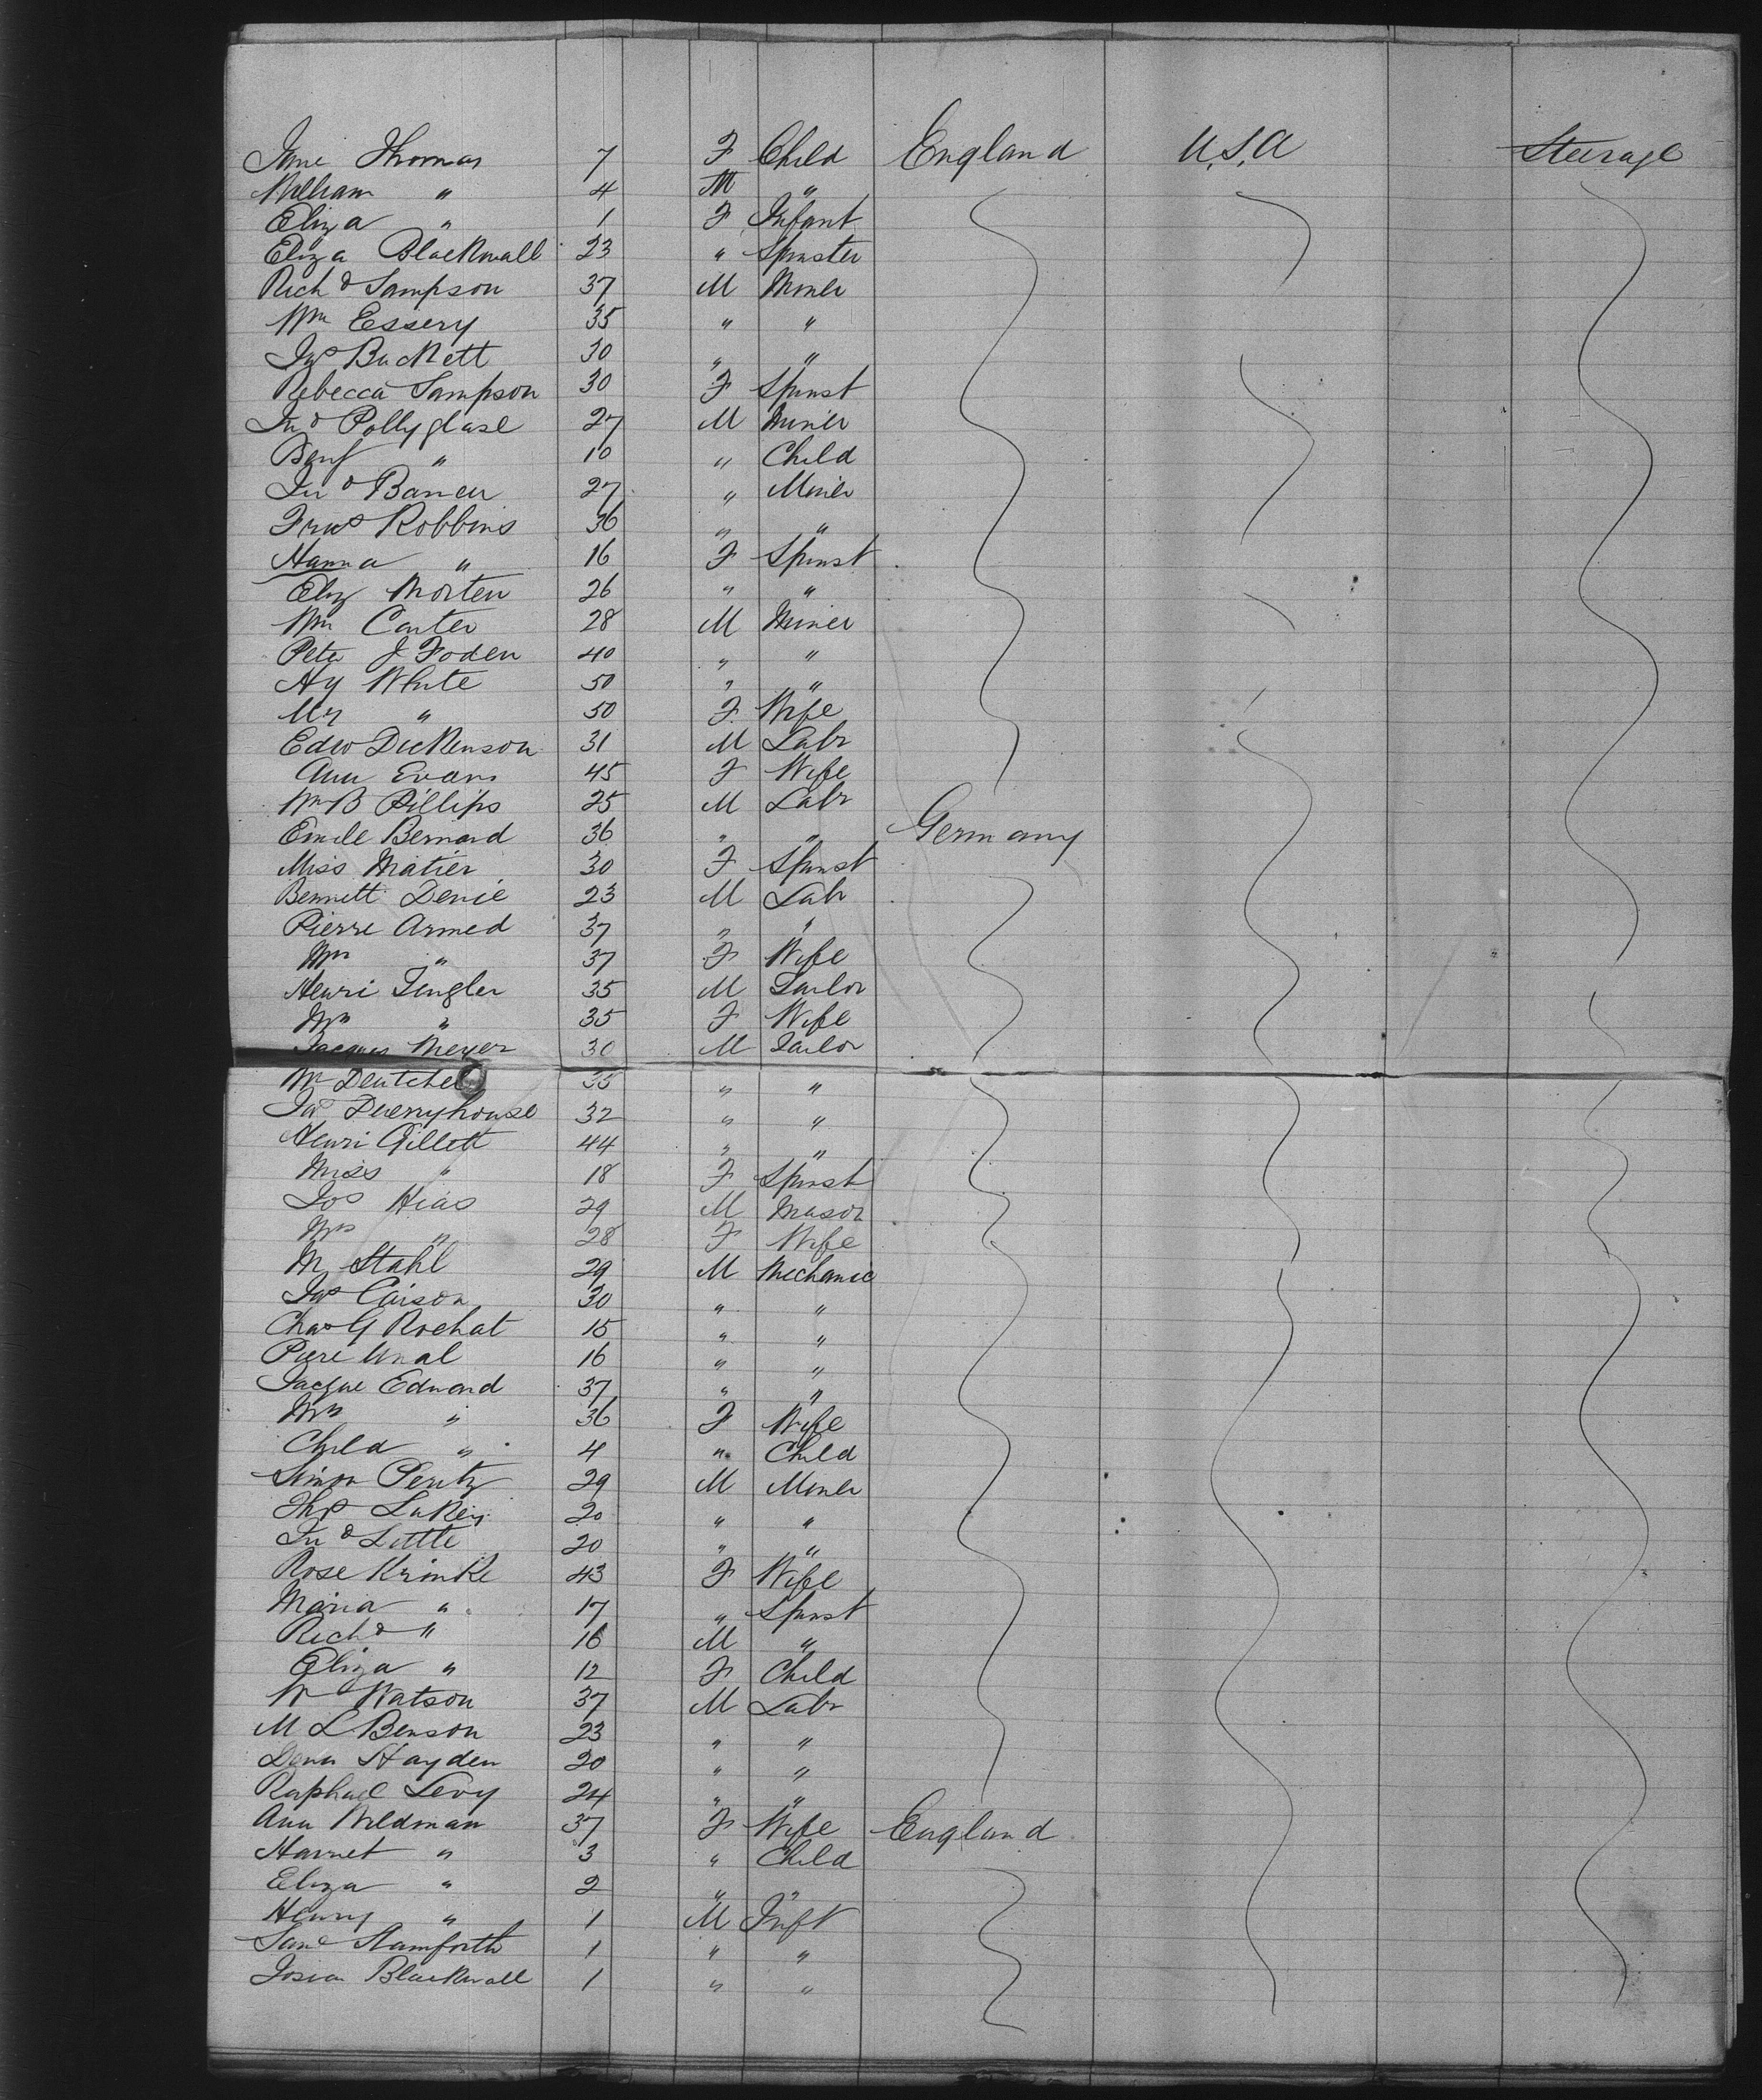 Jane Thomas 7 F Child England U.S.A Steerage
William " 4 M "
Eliza " 1 F Infant
Eliza Blackwall 23 " Spinster
Richd Sampson 37 M Miner
Wm Essery 35 " "
Jas Buckett 30 " "
Rebecca Sampson 30 F Spinst
Jno Pollyglase 27 M Miner
Benj " 10 " Child
Jno 27 " Miner
Fras Robbins 36 " "
Hanna " 16 F Spinst
Eliz Morten 26 " "
Wm Carter 28 M Miner
Peter J Foden 40 " "
Hy White 50 " "
Mrs " 50 F Wife
Edw Dickenson 31 M Labr
Ann Evans 45 F Wife
Wm B Pillips 25 M Labr
Emile Bernard 36 " " Germany
Miss Matier 30 F Spinst
Bennett Denie 23 M Labr
Pierre Armed 37 " "
Mrs " 37 F Wife
Henri Zingler 35 M Tailor
Mrs " 35 F Wife
Jacques Meyer 30 M Tailor
M Deutchel 35 " "
Jas Duerryhouse 32 " "
Henri Gillett 44 " "
Miss " 18 F Spinst
Jos Hias 29 M Mason
Mrs " 28 F Wife
M Stahl 29 M Mechanic
Jas Caison 30 " "
Chas G Rochat 15 " "
Piere Unal 16 " "
Jacque Edward 37 " "
Mrs " 36 F Wife
Child " 4 " Child
Simon Peritz 29 M Miner
Thos Lukey 20 " "
Jno Little 20 " "
Rose Krinke 43 F Wife
Maria " 17 " Spinst
Richd " 16 M "
Eliza " 12 F Child
W Watson 37 M Labr
M L Benson 23 " "
Denn Hayden 20 " "
Raphael Levy 24 " "
Ann Wildman 37 F Wife England
Harriet " 3 " Child
Eliza " 2 " "
Henry " 1 M Inft
Stamforth 1 " "
Josiah Blackwall 1 " "